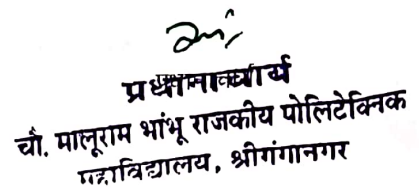 प्रधानाचार्य
चौ. मालूराम भांभू राजकीय पोलिटेक्निक
महाविद्यालय, श्रीगंगानगर